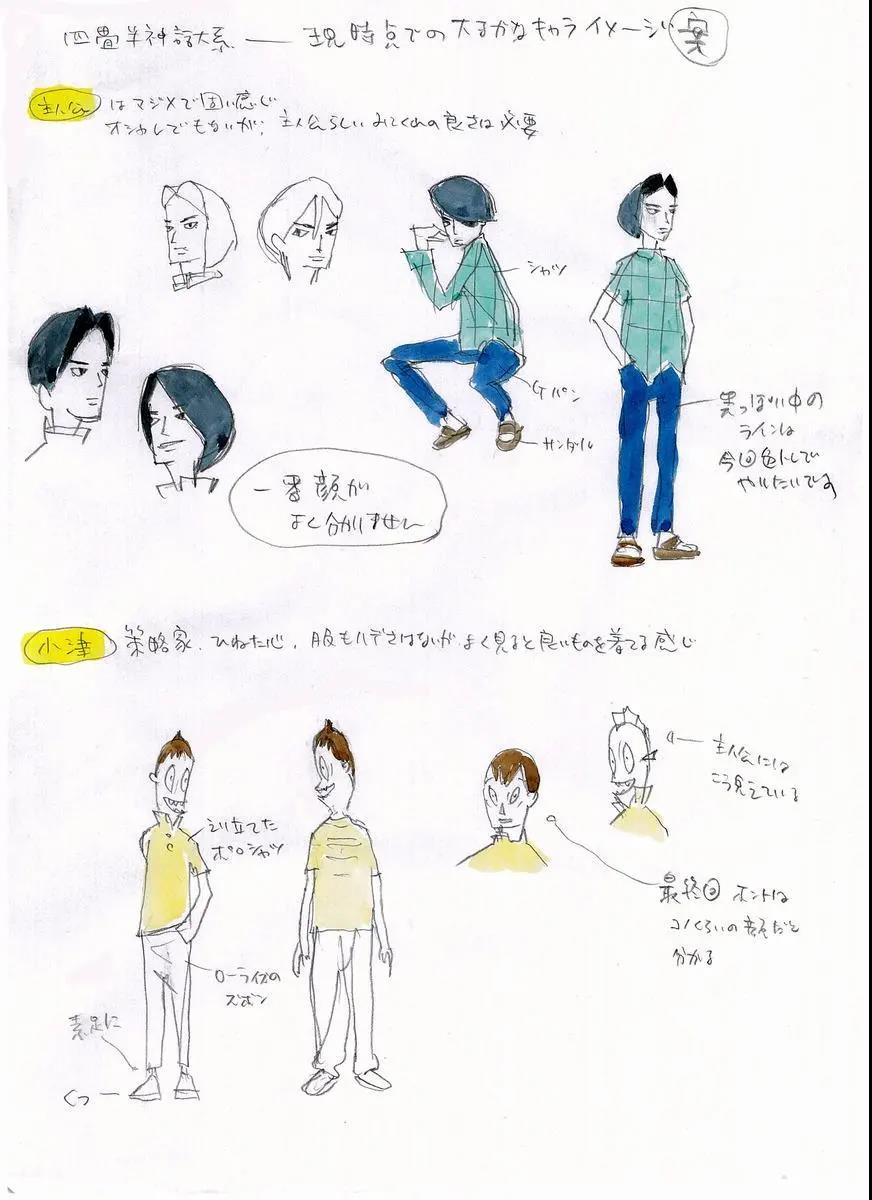 四畳半神話大系 ― 現時点での大まかなキャライメージ 案
主人公 はマジメで固い感じ
オシャレでもないが、主人公らしいみてくれの良さは必要
シャツ
Gパン
サンダル
黒っぽい中の
ラインは
今回色トレで
やりたいです
一番顔が
よく分かりません
小津 策略家、ひねた心、服もハデさはないが、よく見ると良いものを着てる感じ
主人公には
こう見えている
えり立てた
ポロシャツ
最終回 ホントは
コノくらいの顔だと
分かる
ローライズの
ズボン
素足に
くつ